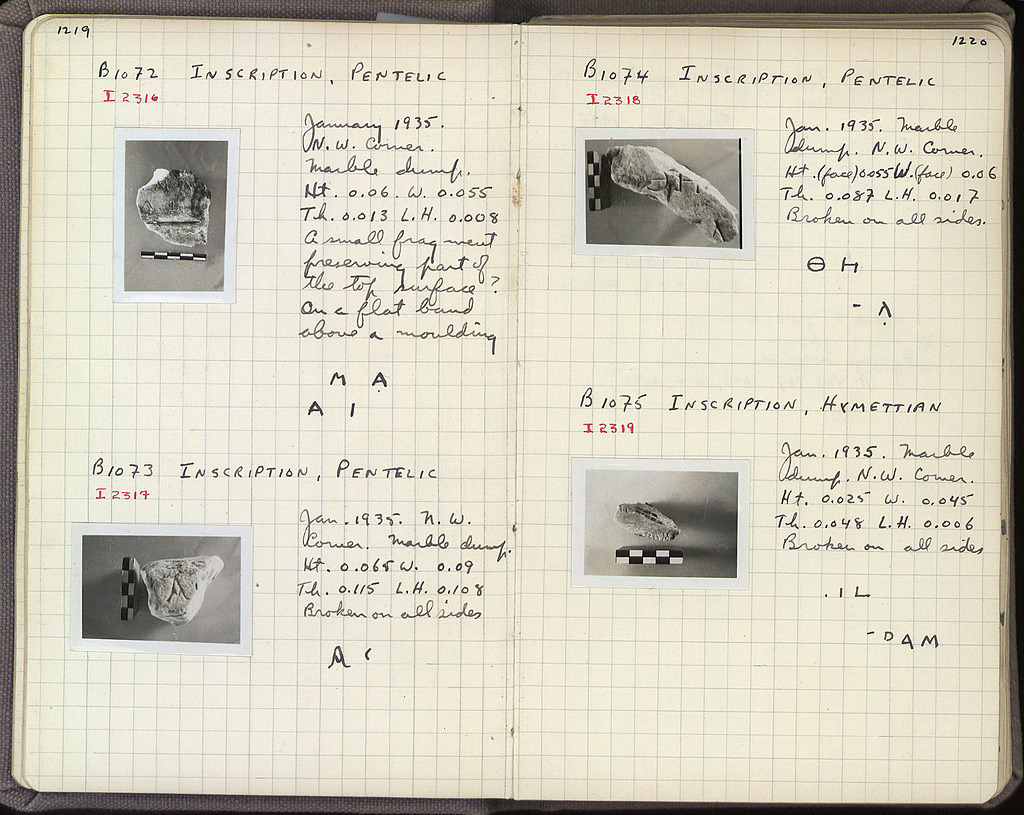 1219
B1072 INSCRIPTION, PENTELIC
I 2316
January 1935.
N.W. Corner.
Marble dump.
Ht. 0.06. W. 0.055
Th. 0.013 L.H. 0.008
A small fragment
preserving part of
the top surface?
On a flat band
above a moulding
M Ạ
A I
B1073 INSCRIPTION, PENTELIC
I 2317
Jan. 1935. N.W.
Corner. Marble dump.
Ht. 0.065 W. 0.09
Th. 0.115 L.H. 0.108
Broken on all sides
1220
B1074 INSCRIPTION, PENTELIC
I 2318
Jan. 1935. Marble
dump. N.W. Corner.
Ht. (face) 0.055 W. (face) 0.06
Th. 0.087 L.H. 0.017
Broken on all sides.
Θ H
- Λ̣
B1075 INSCRIPTION, HYMETTIAN
I 2319
Jan. 1935. Marble
dump. N.W. Corner.
Ht. 0.025 W. 0.045
Th. 0.048 L.H. 0.006
Broken on all sides
. I L
- D A M